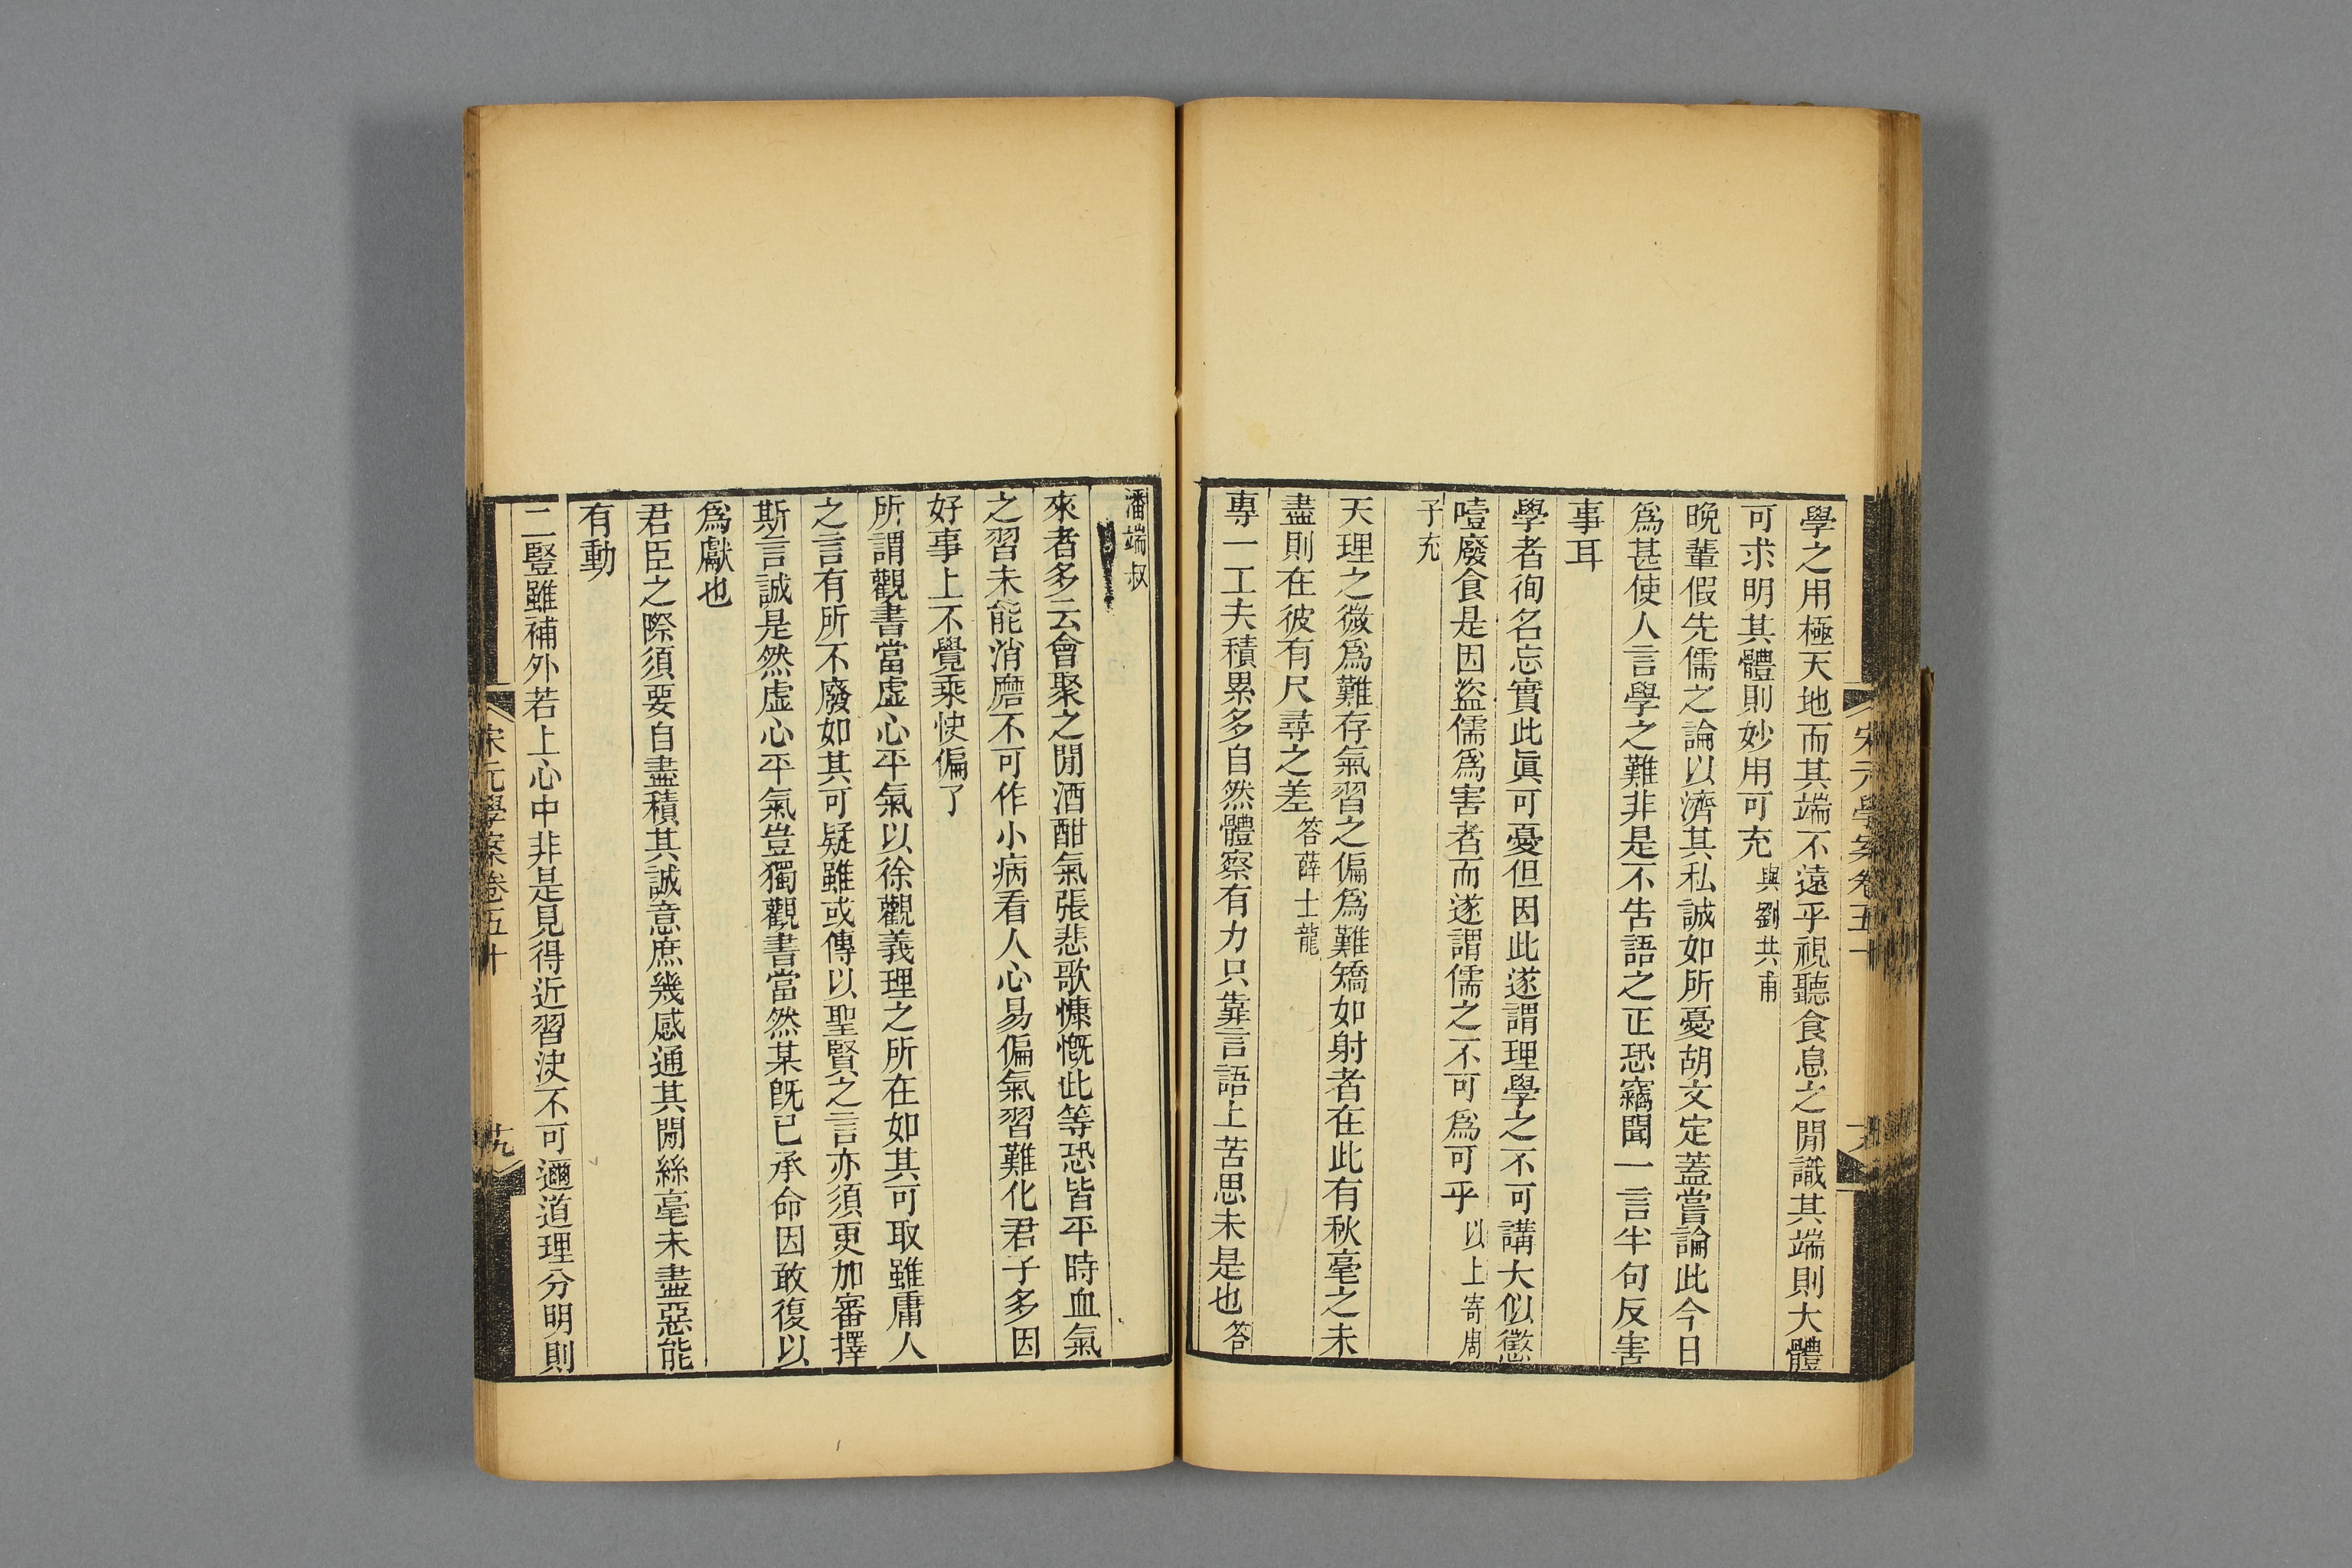 學之用極天地而其端不遠乎視聽食息之閒識其端則大體
可求明其體則妙用可充與劉共甫
晚輩假先儒之論以濟其私誠如所憂胡文定蓋嘗論此今日
爲甚使人言學之難非是不告語之正恐竊聞一言半句反害
事耳
學者徇名忘實此眞可憂但因此遂謂理學之不可講大似懲
噎廢食是因盜儒爲害者而遂謂儒之不可爲可乎以上寄周
子充
天理之微爲難存氣習之偏爲難矯如射者在此有秋毫之未
盡則在彼有尺尋之差答薛士龍
專一工夫積累多自然體察有力只靠言語上苦思未是也答
宋元學案卷五十
潘端叔
來者多云會聚之閒酒酣氣張悲歌慷慨此等恐皆平時血氣
之習未能消磨不可作小病看人心易偏氣習難化君子多因
好事上不覺乘快偏了
所謂觀書當虛心平氣以徐觀義理之所在如其可取雖庸人
之言有所不廢如其可疑雖或傳以聖賢之言亦須更加審擇
斯言誠是然虛心平氣豈獨觀書當然某旣已承命因敢復以
爲獻也
君臣之際須要自盡積其誠意庶幾感通其閒絲毫未盡惡能
有動
二豎雖補外若上心中非是見得近習決不可邇道理分明則
宋元學案卷五十
十九